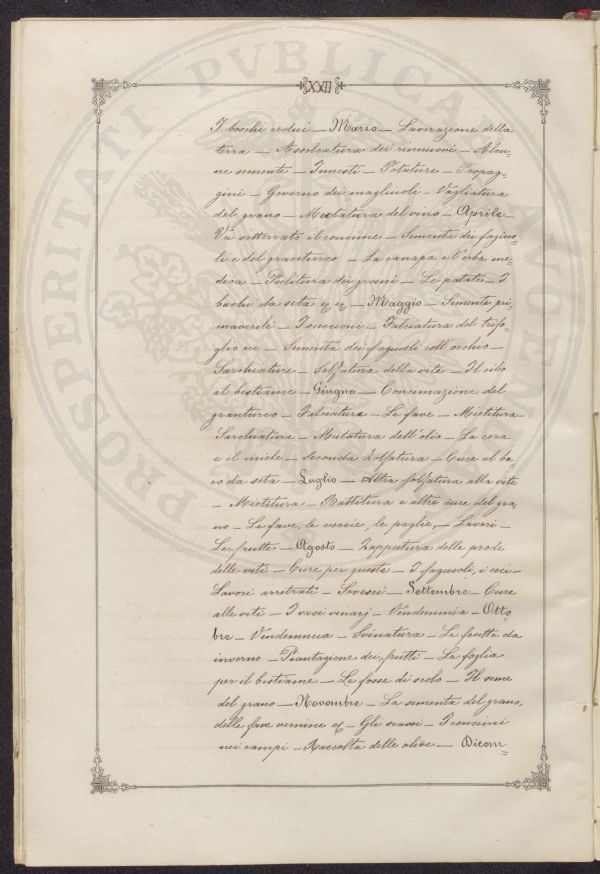 XXII
I boschi cedui — Marzo — Lavorazione della
terra — Assolcatura dei rinnuovi — Alcu-
ne semente — Innesti — Potature — Propag-
gini — Governo dei magliuoli — Vagliatura
del grano — Mutatura del vino — Aprile —
Va sotterrato il concime — Sementa dei fagiuo-
li e del granturco — La canapa e l'erba me-
dica — Pulitura dei grani — Le patate — I
bachi da seta &c &c — Maggio — Semente pri-
maverili — I succioni — Falciatura del trifo-
glio ecc — Sementa dei fagiuoli coll'occhio —
Sarchiature — Solfatura della vite — Il cibo
al bestiame — Giugno — Concimazione del
granturco — Falciatura — Le fave — Mietitura —
Sarchiature — Mutatura dell'olio — La cera
e il miele — Seconda solfatura — Cure al ba-
co da seta — Luglio — Altra solfatura alla vite
— Mietitura — Battitura e altre cure del gra-
no — Le fave, le veccie, le paglie, — Lavori —
Le frutte — Agosto — Zappatura delle prode
delle viti — Cure per queste — I faguoli, i ceci —
Lavori arretrati — Sovesci — Settembre — Cure
alle viti — I vasi vinarj — Vendemmia — Otto-
bre — Vendemmia — Svinatura — Le frutta da
inverno — Piantagione dei frutti — La foglia
per il bestiame — Le fosse di scolo — Il seme
del grano — Novembre — La sementa del grano,
delle fave vernine &c — Gli scassi — I concimi
nei campi — Raccolta delle olive — Dicem-
PROSPERITATI PVBLICAE AVGEN